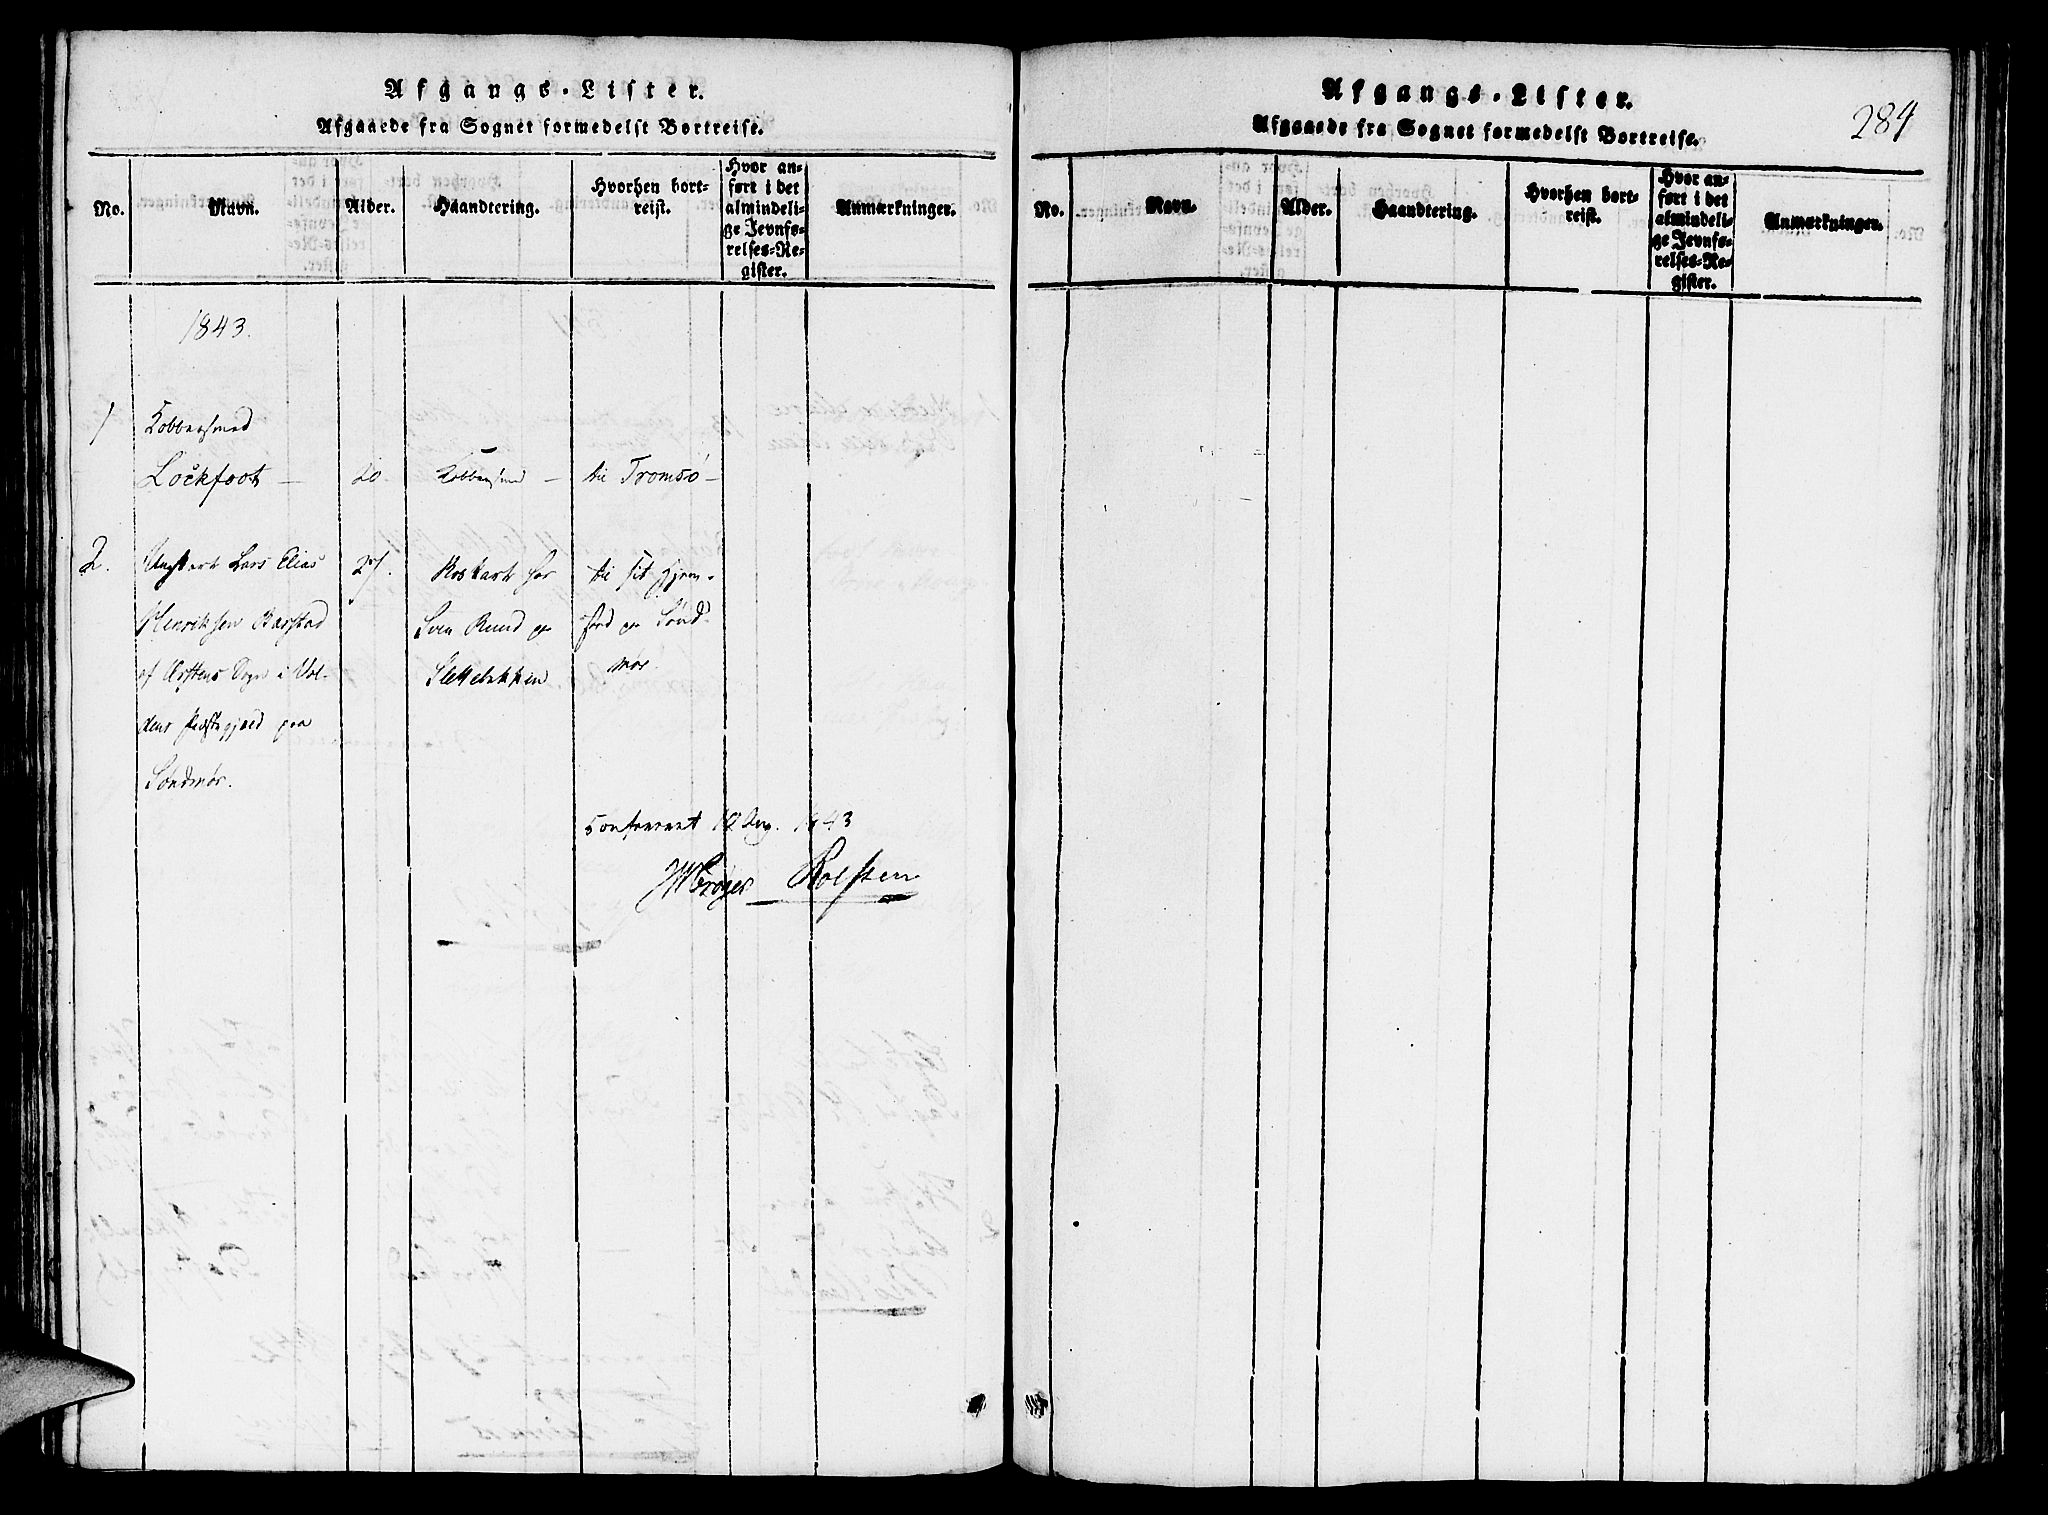 Afgangs-Lister.
Afgaaede fra Sognet formedelst Bortreise.
No.
Navn.
Alder.
Haandtering.
Hvorhen bort-
reist.
Hvor an-
ført i det
almindeli-
ge Jevnfø-
relses-Re-
gister.
Anmærkninger.
1843.
1
Kobbersmed
Lockfoot –
20.
Kobbersmed –
til Tromsø –
2.
Ungkarl Lars Elias
Henriksen Barstad
af Ørstens Sogn i Vol-
dens Præstegjæld paa
Søndmør.
27.
Roskarl hos
Sven Ruud pp
Slettebakken
til sit Hjem-
sted pp Sønd-
mør.
Conferert 18 Aug. 1843
Rolfsen
Afgangs-Lister.
Afgaaede fra Sognet formedelst Bortreise.
284
No.
Navn.
Alder.
Haandtering.
Hvorhen bort-
reist.
Hvor an-
ført i det
almindeli-
ge Jevnfø-
relses-Re-
gister.
Anmærkninger.